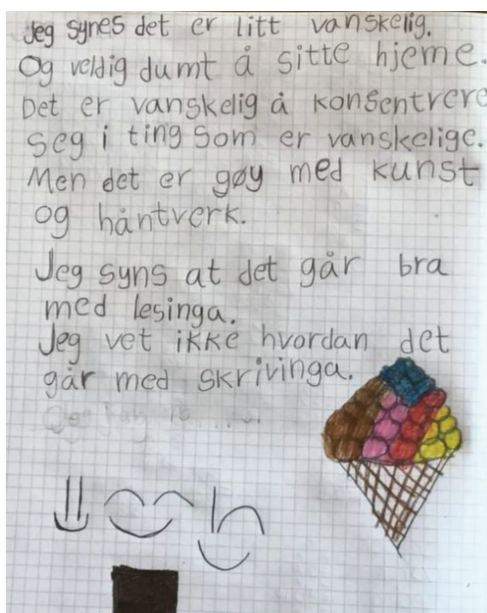 Jeg synes det er litt vanskelig.
Og veldig dumt å sitte hjeme.
Det er vanskelig å konsentrere
seg i ting som er vanskelige.
Men det er gøy med kunst
og håntverk.
Jeg syns at det går bra
med lesinga.
Jeg vet ikke hvordan det
går med skrivinga.